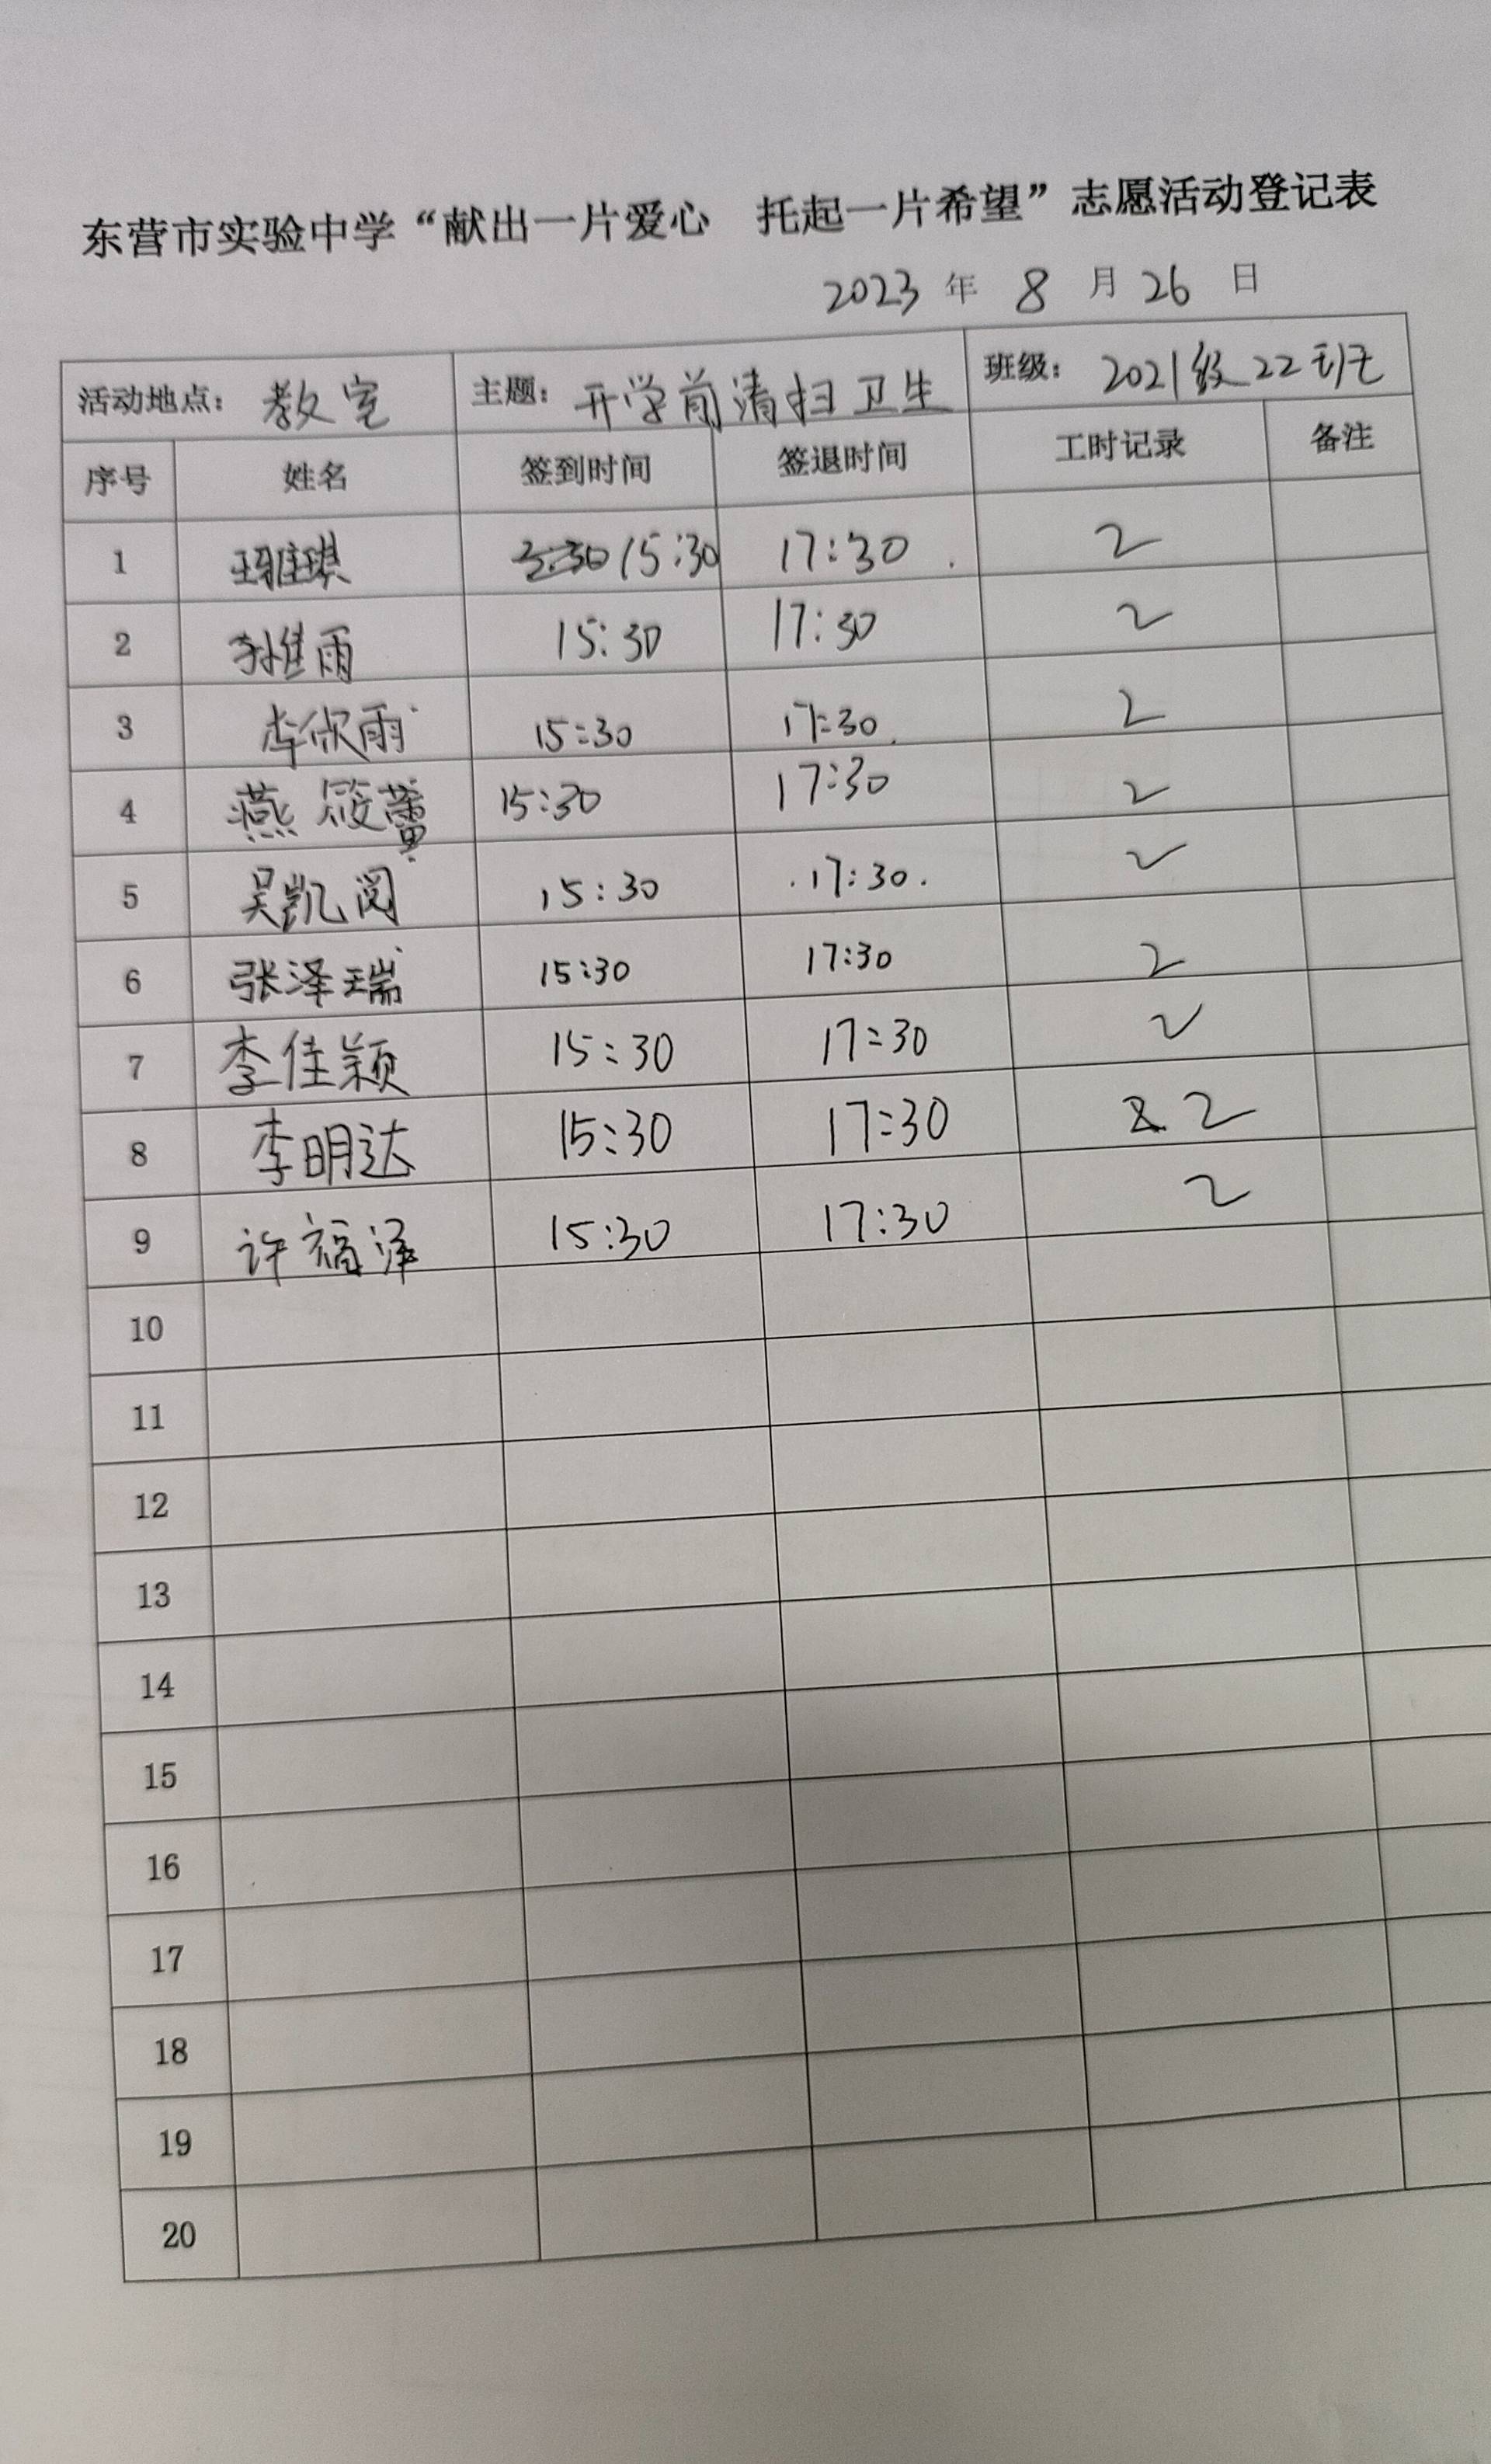 东营市实验中学“献出一片爱心 托起一片希望”志愿活动登记表
2023 年 8 月 26 日
活动地点: 教室 主题: 开学前清扫卫生 班级: 2021级22班
序号 姓名 签到时间 签退时间 工时记录 备注
1 15:30 17:30 2
2 15:30 17:30 2
3 李欣雨 15:30 17:30 2
4 燕筱蕾 15:30 17:30 2
5 吴凯闵 15:30 17:30 2
6 张泽瑞 15:30 17:30 2
7 李佳颖 15:30 17:30 2
8 李明达 15:30 17:30 2
9 许福泽 15:30 17:30 2
10
11
12
13
14
15
16
17
18
19
20